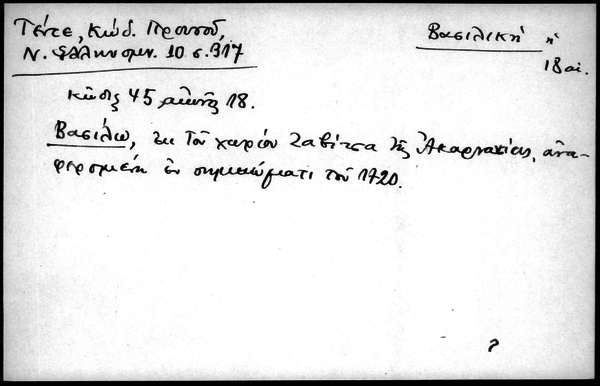 Τέντε, Κώδ. Προυσού,
Ν. Ἑλληνομν. 10 σ. 317
Βασιλική ἡ
18 αἰ.
Κῶδιξ 45 αἰῶνος 18.
Βασίλω, ἐκ τοῦ χωρίου Ζαβίτσα τῆς Ἀκαρνανίας, ἀνα-
φερομένη ἐν σημειώματι τοῦ 1720.